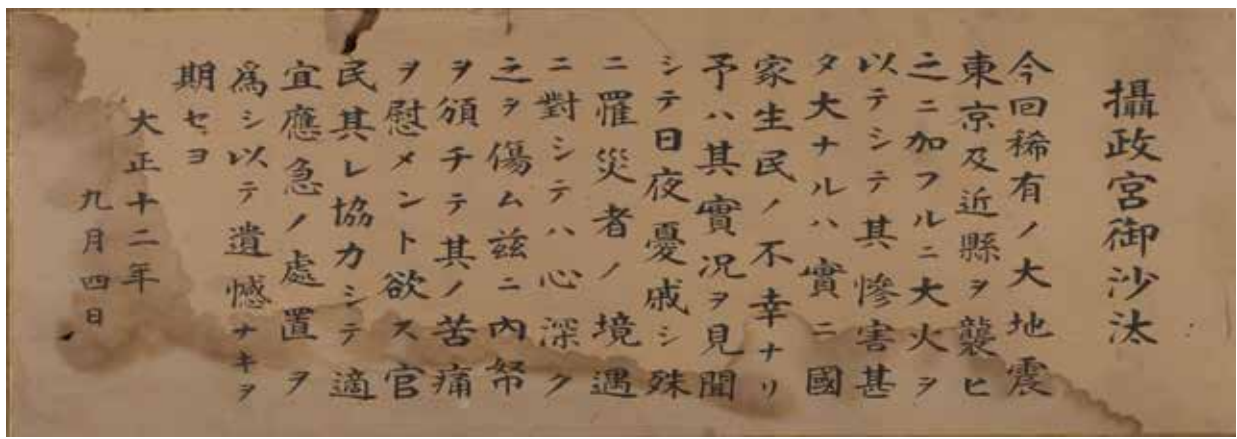 攝政宮御沙汰
今回稀有ノ大地震
東京及近縣ヲ襲ヒ
之ニ加フルニ大火ヲ
以テシテ其慘害甚
タ大ナルハ實ニ國
家生民ノ不幸ナリ
予ハ其實況ヲ見聞
シテ日夜憂戚シ殊
ニ罹災者ノ境遇
ニ對シテハ心深ク
之ヲ傷ム茲ニ內帑
ヲ頒チテ其ノ苦痛
ヲ慰メント欲ス官
民其レ協力シテ適
宜應急ノ處置ヲ
爲シ以テ遺憾ナキヲ
期セヨ
大正十二年
九月四日